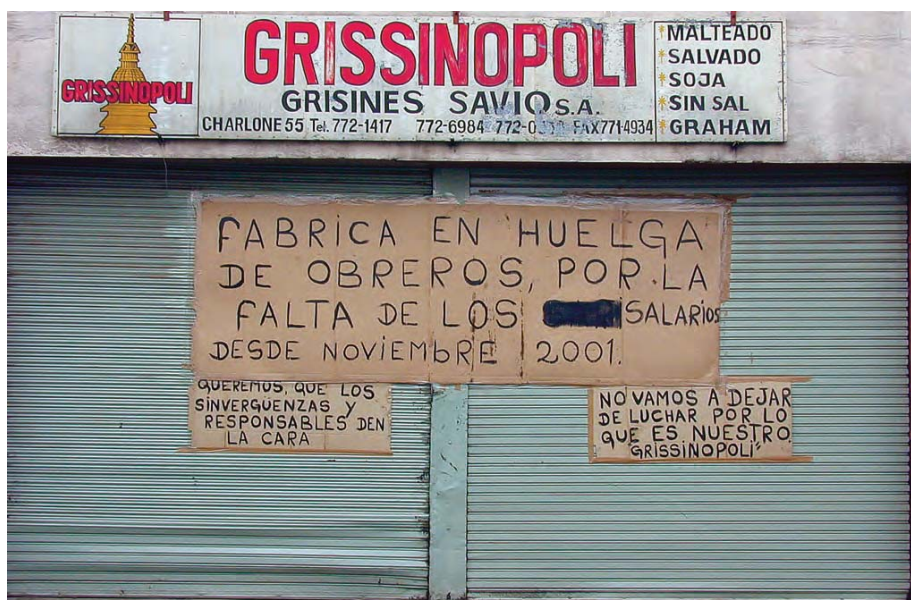 GRISSINOPOLI
GRISSINOPOLI
GRISINES SAVIO S.A.
CHARLONE 55 Tel. 772-1417 772-6984 FAX 771-4934
*MALTEADO
*SALVADO
*SOJA
*SIN SAL
*GRAHAM
FABRICA EN HUELGA
DE OBREROS, POR LA
FALTA DE LOS SALARIOS
DESDE NOVIEMBRE 2001.
QUEREMOS, QUE LOS
SINVERGÜENZAS Y
RESPONSABLES DEN
LA CARA
NO VAMOS A DEJAR
DE LUCHAR POR LO
QUE ES NUESTRO.
"GRISSINOPOLI"